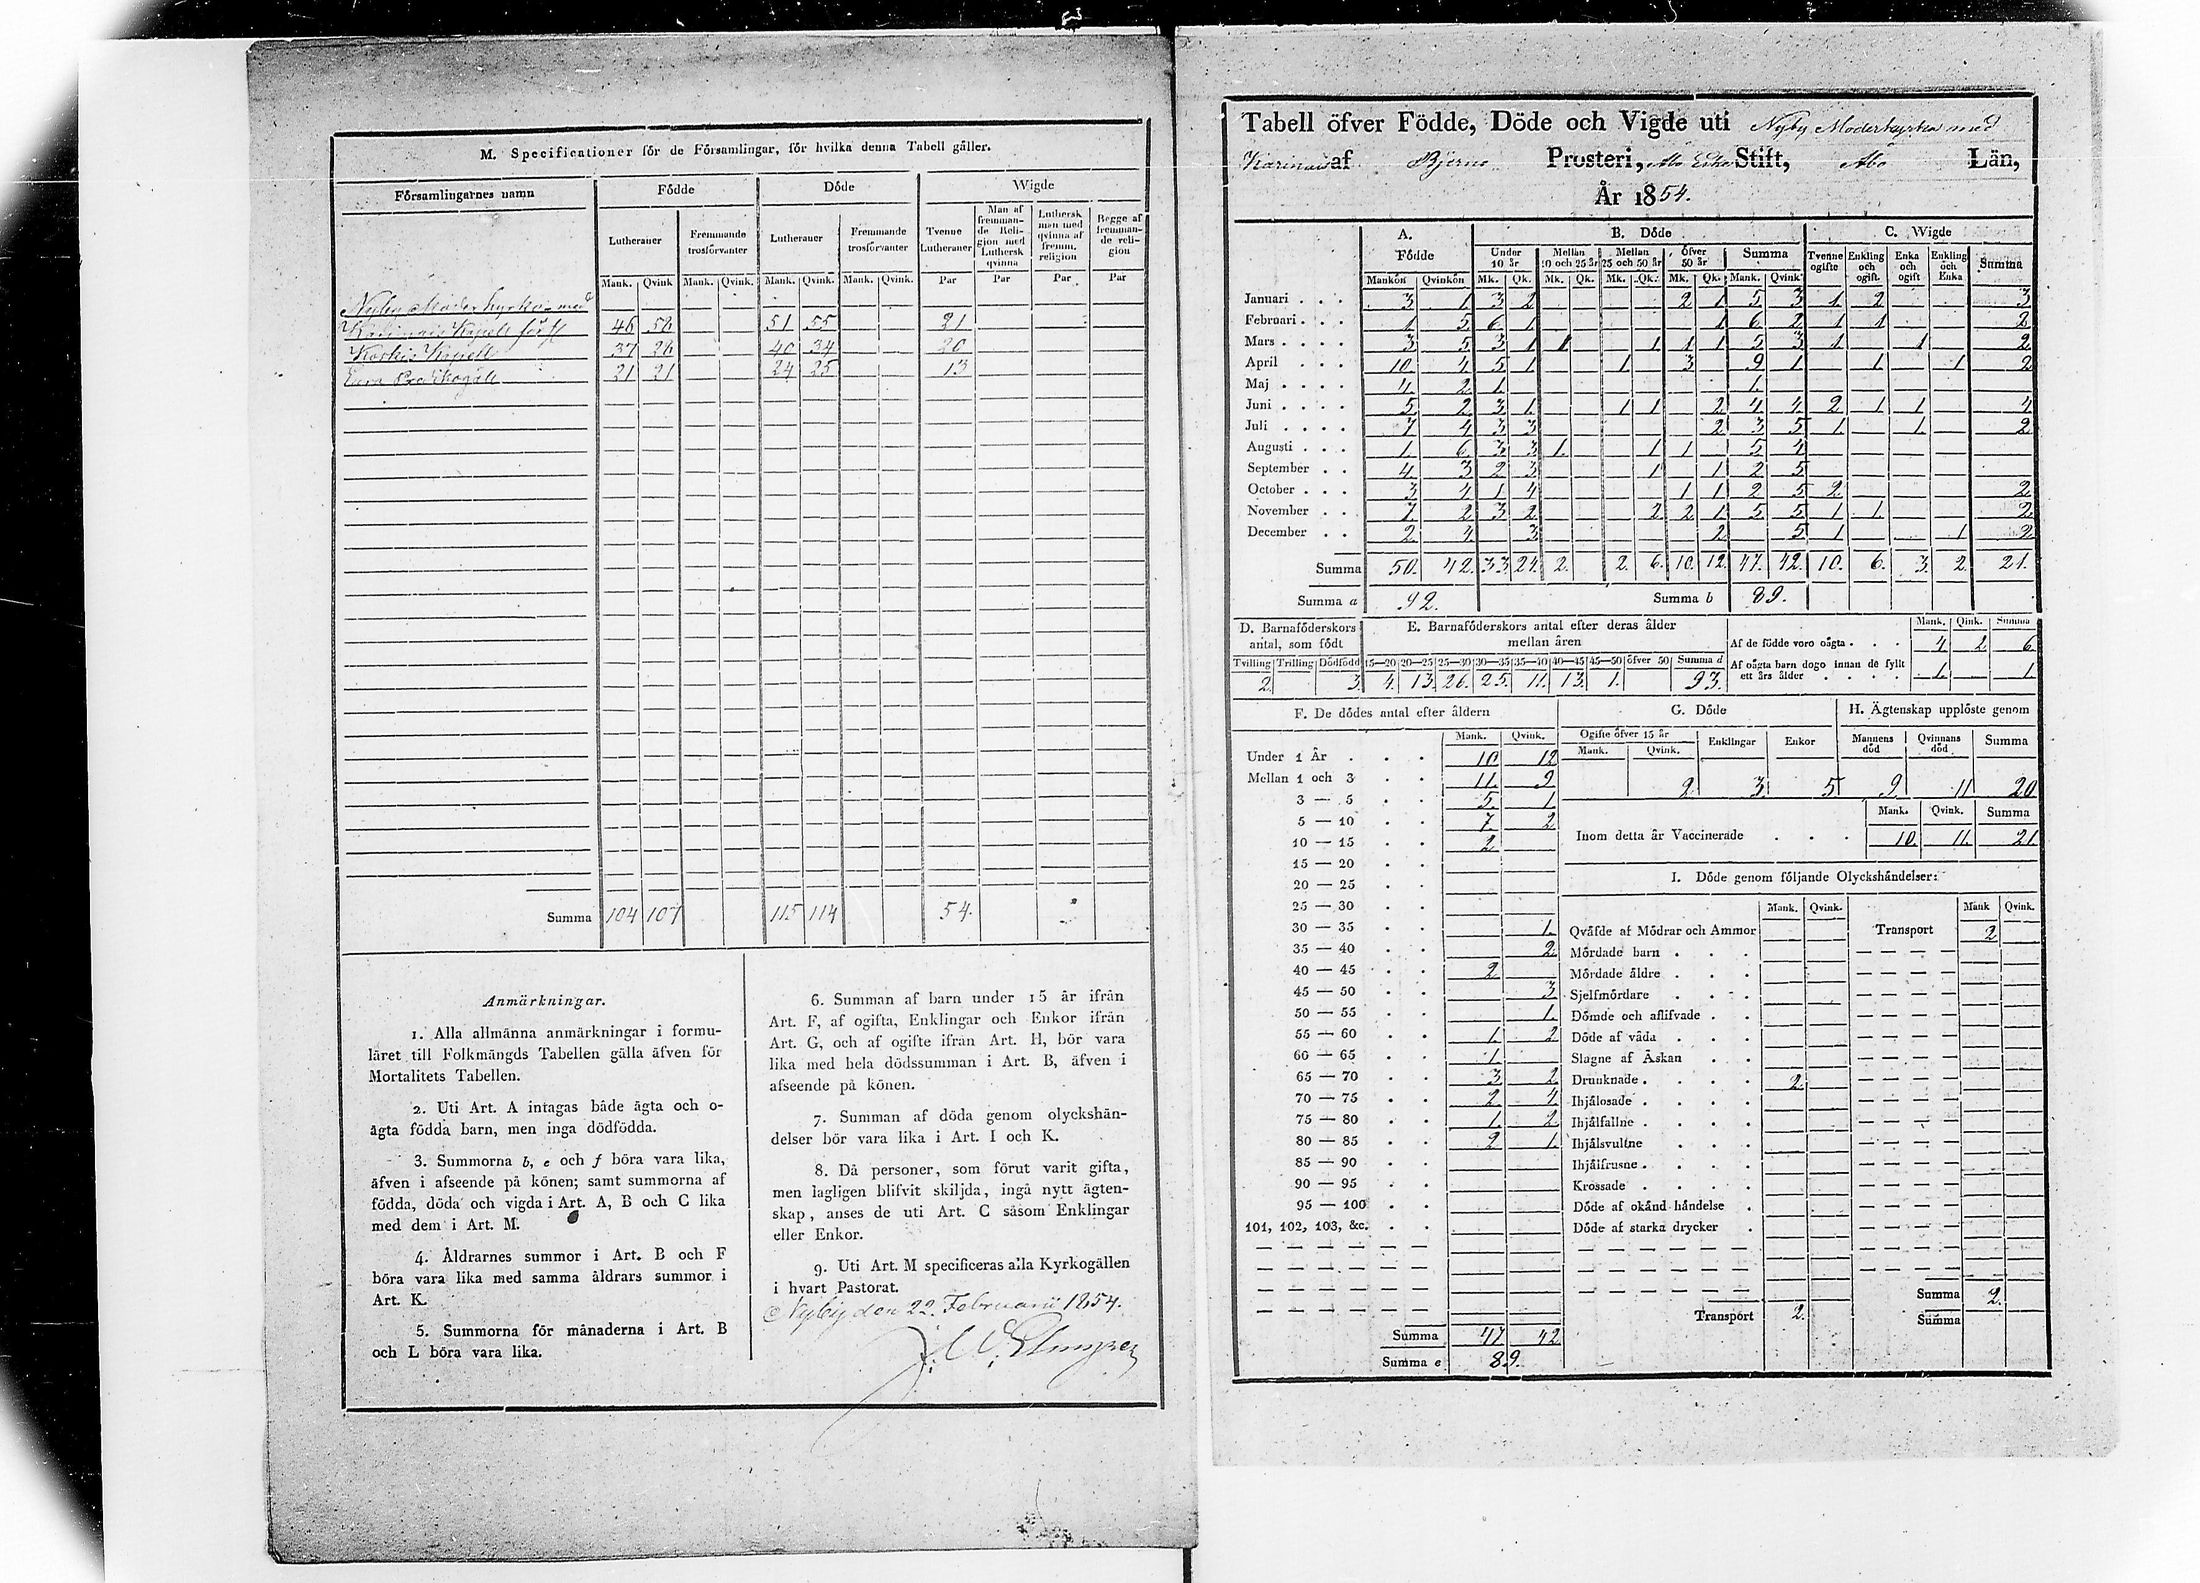 M. Specificationer för de Församlingar, för hvilka denna Tabell gäller.
Församlingarnes namn Födde Döde Wigde
Lutheraner Fremmande trosförvanter Lutheraner Fremmande trosförvanter Tvenne Lutheraner Man af fremmande Religion med Luthersk qvinna Luthersk man med qvinna af fremm. religion Begge af fremmande religion
Mank. Qvink Mank. Qvink. Mank. Qvink. Mank. Qvink. Par Par Par Par
Nyby Moder kyrka med
Karinais Kapell förs 46 58 51 55 21
Koskis Kapell 37 26 40 34 20
Eura Predikogäll 21 21 24 25 13
Summa 104 107 115 114 54.
Anmärkningar.
1. Alla allmänna anmärkningar i formu-
läret till Folkmängds Tabellen gälla äfven för
Mortalitets Tabellen.
2. Uti Art. A intagas både ägta och o-
ägta födda barn, men inga dödfödda.
3. Summorna b, e och f böra vara lika,
äfven i afseende på könen; samt summorna af
födda, döda och vigda i Art. A, B och C lika
med dem i Art. M.
4. Åldrarnes summor i Art. B och F
böra vara lika med samma åldrars summor i
Art. K.
5. Summorna för månaderna i Art. B
och L böra vara lika.
6. Summan af barn under 15 år ifrån
Art. F, af ogifta, Enklingar och Enkor ifrån
Art. G, och af ogifte ifrån Art. H, bör vara
lika med hela dödssumman i Art. B, äfven i
afseende på könen.
7. Summan af döda genom olyckshän-
delser bör vara lika i Art. I och K.
8. Då personer, som förut varit gifta,
men lagligen blifvit skiljda, ingå nytt ägten-
skap, anses de uti Art. C såsom Enklingar
eller Enkor.
9. Uti Art. M specificeras alla Kyrkogällen
i hvart Pastorat.
Nyby den 22 Februarii 1854.
Tabell öfver Födde, Döde och Vigde uti Nyby Moderkyrka med
Karinais af Bjerno Prosteri, Åbo Erke Stift, Åbo Län,
År 1854.
A. Födde B. Döde C. Wigde
Under 10 år Mellan 10 och 25 år Mellan 25 och 50 år öfver 50 år Summa Tvenne ogifte Enkling och ogift. Enka och ogift Enkling och Enka Summa
Mankön Qvinkön Mk. Qk. Mk. Qk. Mk. Qk. Mk. Qk. Mank. Qvink
Januari . . . 3 1 3 2 2 1 5 3 1 2 3
Februari . . . 1 5 6 1 1 6 2 1 1 2
Mars . . . . 3 5 3 1 1 1 1 1 5 3 1 1 2
April . . . 10 4 5 1 1 3 9 1 1 1 2
Maj . . . . 4 2 1 1
Juni . . . . 5 2 3 1 1 1 2 4 4 2 1 1 4
Juli . . . . 7 4 3 3 2 3 5 1 1 2
Augusti . . . 1 6 3 3 1 1 1 5 4
September . . 4 3 2 3 1 1 2 5
October . . . 3 4 1 4 1 1 2 5 2 2
November . . 7 2 3 2 2 2 1 5 5 1 1 2
December . . 2 4 3 2 5 1 1 2
Summa 50. 42. 33 24 2. 2. 6. 10. 12. 47. 42. 10. 6. 3. 2. 21.
Summa a 92. Summa b 89.
D. Barnaföderskors antal, som födt
Tvilling Trilling Dödfödd
2. 3.
E. Barnaföderskors antal efter deras ålder mellan åren
15—20 20—25 25—30 30—35 35—40 40—45 45—50 öfver 50 Summa d
4. 13. 26. 25. 11. 13. 1. 93.
Mank. Qink. Summa
Af de födde voro oägta . . . 4 2 6
Af oägta barn dogo innan de fyllt ett års ålder . . . . 1. 1.
F. De dödes antal efter åldern
Mank. Qvink.
Under 1 År . . . 10 12
Mellan 1 och 3 . . 11. 9
3 — 5 . . 5. 1
5 — 10 . . 7. 2
10 — 15 . . 2
15 — 20 . .
20 — 25 . .
25 — 30 . .
30 — 35 . . 1.
35 — 40 . . 2
40 — 45 . . 2
45 — 50 . . 3
50 — 55 . . 1.
55 — 60 . . 1. 2
60 — 65 . . 1.
65 — 70 . . 3 2
70 — 75 . . 2 4
75 — 80 . . 1. 2
80 — 85 . . 2 1.
85 — 90 . .
90 — 95 . .
95 — 100 . .
101, 102, 103, &c. . .
Summa 47 42
Summa e 89.
G. Döde
Ogifte öfver 15 år Enklingar Enkor
Mank. Qvink.
2 3. 5
H. Ägtenskap upplöste genom
Mannens död Qvinnans död Summa
9. 11 20
Mank. Qvink. Summa
Inom detta år Vaccinerade . . . 10. 11. 21
I. Döde genom följande Olyckshändelser:
Mank. Qvink. Mank Qvink.
Qväfde af Mödrar och Ammor Transport 2
Mördade barn . . .
Mördade äldre . . .
Sjelfmördare . . .
Dömde och aflifvade . .
Döde af våda . . .
Slagne af Åskan . .
Drunknade . . . . 2.
Ihjälosade . . . .
Ihjälfallne . . . .
Ihjälsvultne . . .
Ihjälfrusne . . . .
Krossade . . . .
Döde af okänd händelse .
Döde af starka drycker .
Summa 2.
Transport 2. Summa